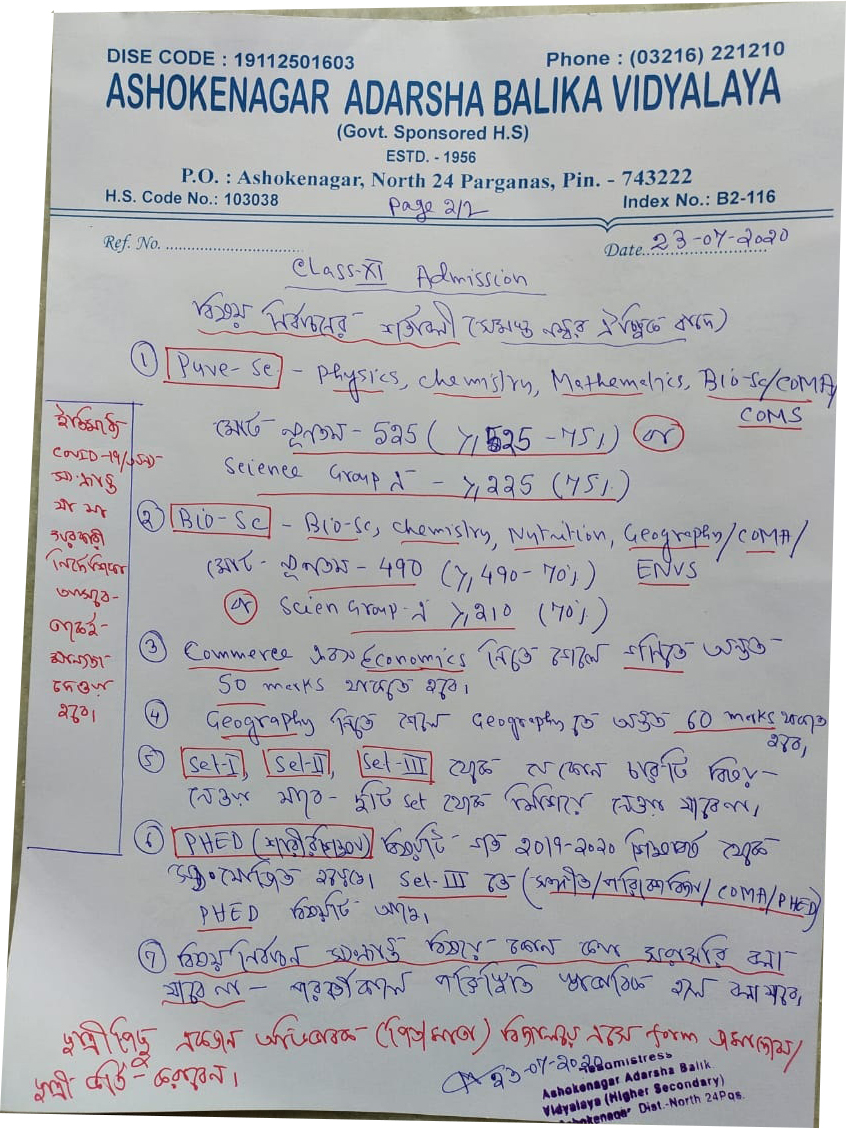 DISE CODE : 19112501603 Phone : (03216) 221210
ASHOKENAGAR ADARSHA BALIKA VIDYALAYA
(Govt. Sponsored H.S)
ESTD. - 1956
P.O. : Ashokenagar, North 24 Parganas, Pin. - 743222
H.S. Code No.: 103038 Page 2/2 Index No.: B2-116
Ref. No. Date. 23-07-2020
Class-XI Admission
বিষয় নির্বাচনের শর্তাবলী (সেমস্ত নম্বর ঐচ্ছিক বাদে)
① Pure-Sc - Physics, Chemistry, Mathematics, Bio-Sc/COMA/
COMS
মোট ন্যূনতম - 525 (⩾525 - 75%) or
Science Group এ - ⩾225 (75%)
② Bio-Sc - Bio-Sc, Chemistry, Nutrition, Geography/COMA/
ENVS
মোট - ন্যূনতম - 490 (⩾490 - 70%)
or Scien Group-এ ⩾210 (70%)
③ Commerce এবং Economics নিতে গেলে গণিতে অন্তত
50 marks থাকতে হবে।
④ Geography নিতে গেলে Geography তে অন্তত 60 marks থাকতে
হবে।
⑤ Set-I, Set-II, Set-III থেকে যে কোন চারটি বিষয়
নেওয়া যাবে - দুটি Set থেকে মিশিয়ে নেওয়া যাবে না।
⑥ PHED (শারীরশিক্ষা) বিষয়টি গত 2019-2020 শিক্ষাবর্ষ থেকে
সংযোজিত হয়েছে। Set-III তে (সঙ্গীত/পরিবেশবিদ্যা/COMA/PHED)
PHED বিষয়টি আছে।
⑦ বিষয় নির্বাচন সংক্রান্ত বিষয়ে কোন কথা সরাসরি বলা
যাবে না - পরবর্তীকালে পরিস্থিতি স্বাভাবিক হলে বলা যাবে।
ইতিমধ্যে
COVID-19
সংক্রান্ত
যা যা
সরকারী
নির্দেশিকা
আসবে-
তাকেই
মান্যতা
দেওয়া
হবে।
ছাত্রীপিছু একজন অভিভাবক (পিতা/মাতা) বিদ্যালয়ে এসে form জমা দেবেন/
ছাত্রী ভর্তি করাবেন।
23-07-2020
Ashokenagar Adarsha Balik
Vidyalaya (Higher Secondary)
Dist.-North 24 Pgs.